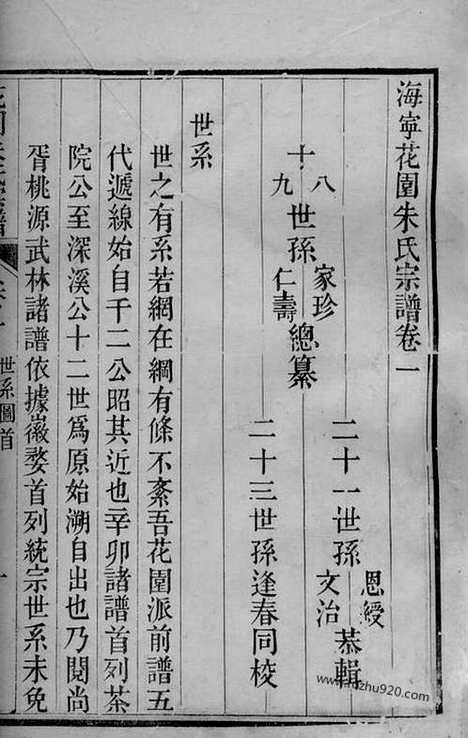 海寧花園朱氏宗譜卷一
二十一世孫恩綬文治恭輯
十八九世孫家珍仁壽總纂
二十三世孫逢春同校
世系
世之有系若網在綱有條不紊吾花園派前譜五
代遞線始自千二公昭其近也辛卯諸譜首列茶
院公至深溪公十二世爲原始溯自出也乃閱尚
胥桃源武林諸譜依據徽婺首列統宗世系未免
世系圖首
一
zhu920.com